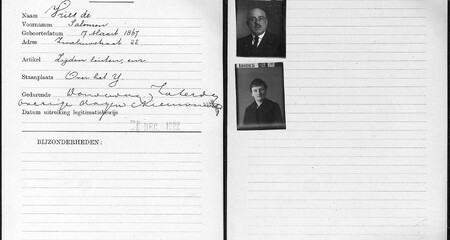 Naam Vries de
Voornamen Salomon
Geboortedatum 17 Maart 1867
Adres Zwaluwstraat 22
Artikel Zijden linten, enz
Staanplaats Over het Y
Gedurende Zaterdag
overige dagen Nieuwmarkt
Datum uitreiking legitimatiebewijs
28 DEC. 1922
BIJZONDERHEDEN: